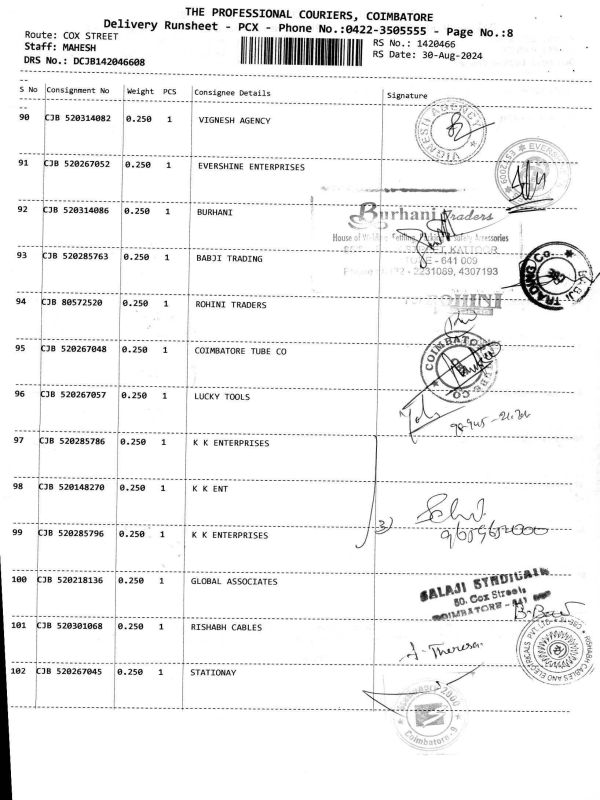 THE PROFESSIONAL COURIERS, COIMBATORE
Delivery Runsheet - PCX - Phone No.:0422-3505555 - Page No.:8
Route: COX STREET
Staff: MAHESH
DRS No.: DCJB142046608
RS No.: 1420466
RS Date: 30-Aug-2024
S No Consignment No Weight PCS Consignee Details Signature
90 CJB 520314082 0.250 1 VIGNESH AGENCY
VIGNESH AGENCY
91 CJB 520267052 0.250 1 EVERSHINE ENTERPRISES
92 CJB 520314086 0.250 1 BURHANI
Burhani Traders
House of Safety Accessories
KATTOOR
- 641 009
Phone - 2231089, 4307193
93 CJB 520285763 0.250 1 BABJI TRADING
BABJI TRADING Co
94 CJB 80572520 0.250 1 ROHINI TRADERS
ROHINI
95 CJB 520267048 0.250 1 COIMBATORE TUBE CO
COIMBATORE TUBE CO
96 CJB 520267057 0.250 1 LUCKY TOOLS
97 CJB 520285786 0.250 1 K K ENTERPRISES
98 CJB 520148270 0.250 1 K K ENT
99 CJB 520285796 0.250 1 K K ENTERPRISES
3
100 CJB 520218136 0.250 1 GLOBAL ASSOCIATES
BALAJI SYNDICATE
80, Cox Street,
COIMBATORE - 641
101 CJB 520301068 0.250 1 RISHABH CABLES
J. Theresa
RISHABH CABLES AND ELECTRICALS PVT. LTD.
102 CJB 520267045 0.250 1 STATIONAY
Coimbatore - 9